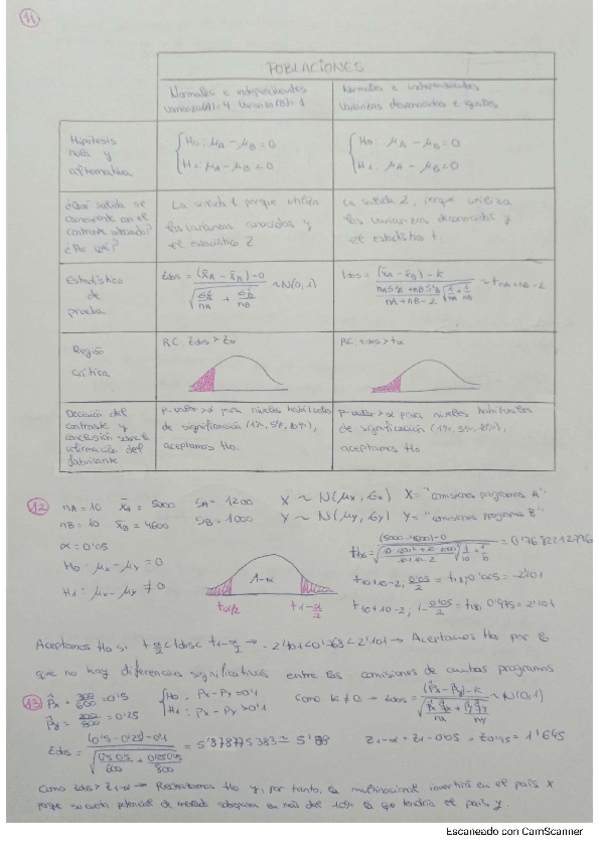 11
POBLACIONES
Normales e independientes
Varianza(A)=4 Varianza(B)=1
Normales e independientes
Varianzas desconocidas e iguales
Hipótesis
nula y
alternativa
H0: μA - μB = 0
H1: μA - μB < 0
H0: μA - μB = 0
H1: μA - μB < 0
¿Qué salida se
corresponde con el
contraste
¿Por qué?
La salida 1 porque utiliza
las varianzas conocidas y
el estadístico Z
La salida 2, porque utiliza
las varianzas desconocidas y
el estadístico t.
Estadístico
de
prueba
Zobs = (x̄A - x̄B) - 0 / √(σ²A/nA + σ²B/nB) ~ N(0,1)
tobs = (x̄A - x̄B) - k / ~ tnA+nB-2
Región
crítica
RC
RC
Decisión del
contraste y
conclusión sobre la
afirmación del
fabricante
p-valor > α para niveles habituales
de significación (1%, 5%, 10%),
aceptamos H0.
p-valor > α para niveles habituales
de significación (1%, 5%, 10%),
aceptamos H0.
12
nA = 10 x̄A = 5000 SA = 1200 X ~ N(μx, σx) X = "comisiones programa A"
nB = 10 x̄B = 4600 SB = 1000 Y ~ N(μy, σy) Y = "comisiones programa B"
α = 0'05
H0: μx - μy = 0
H1: μx - μy ≠ 0
1-α
tα/2 t1-α/2
t10+10-2, 0'05/2 = t18, 0'025 = -2'101
t10+10-2, 1-0'05/2 = t18, 0'975 = 2'101
Aceptamos H0 si -2'101 < 0'768 < 2'101 → Aceptamos H0 por
que no hay diferencias significativas entre las comisiones de ambos programas
13
p̂x = 300/600 = 0'5
p̂y = 200/800 = 0'25
H0: px - py = 0'1
H1: px - py > 0'1
Como k ≠ 0 → Zobs = (p̂x - p̂y) - k / √(p̂x q̂x/nx + p̂y q̂y/ny) ~ N(0,1)
Zobs = (0'5 - 0'25) - 0'1 / √(0'5·0'5/600 + 0'25·0'75/800) = 5'878775383 ≃ 5'88
Z1-α = Z1-0'05 = Z0'95 = 1'645
Como Zobs > Z1-α → Rechazamos H0 y, por tanto, la multinacional invertirá en el país X
porque su cuota potencial de mercado sobrepasa en más del 10% la que tendría el país Y.
Escaneado con CamScanner